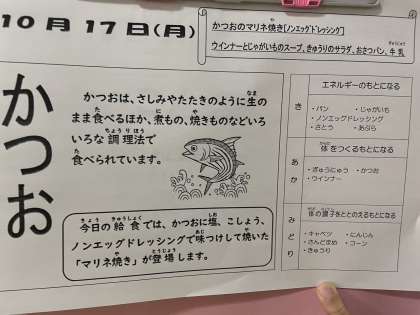 10月17日(月)
かつおのマリネ焼き[ノンエッグドレッシング]
ウインナーとじゃがいものスープ、きゅうりのサラダ、おさつパン、牛乳
かつお
かつおは、さしみやたたきのように生の
まま食べるほか、煮もの、焼きものなどいろ
いろな調理法で
食べられています。
今日の給食では、かつおに塩、こしょう、
ノンエッグドレッシングで味つけして焼いた
「マリネ焼き」が登場します。
き
エネルギーのもとになる
・パン ・じゃがいも
・ノンエッグドレッシング
・さとう ・あぶら
あか
体をつくるもとになる
・ぎゅうにゅう ・かつお
・ウインナー
みどり
体の調子をととのえるもとになる
・キャベツ ・にんじん
・さんどまめ ・コーン
・きゅうり